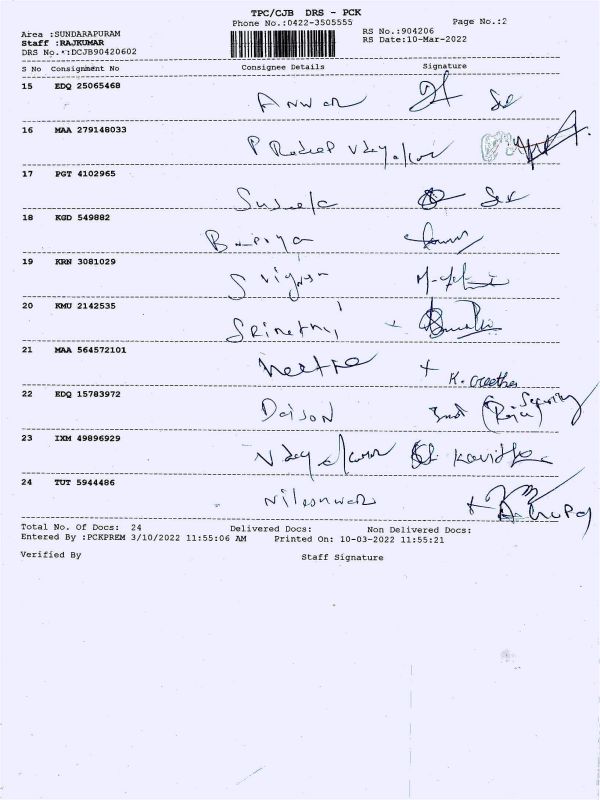 TPC/CJB DRS - PCK
Phone No.:0422-3505555
Page No.:2
Area :SUNDARAPURAM
RS No.:904206
Staff :RAJKUMAR
RS Date:10-Mar-2022
DRS No.:DCJB90420602
S No Consignment No Consignee Details Signature
15 EDQ 25065468
Anwar
16 MAA 279148033
P Radeep Vdayakumar
17 PGT 4102965
Suseela
18 KGD 549882
19 KRN 3081029
S Vignesh
20 KMU 2142535
21 MAA 564572101
K. Geetha
22 EDQ 15783972
Daison (Raja) Security
23 IXM 49896929
Vdayakumar Kavitha
24 TUT 5944486
Nileshwar
Total No. Of Docs: 24 Delivered Docs: Non Delivered Docs:
Entered By :PCKPREM 3/10/2022 11:55:06 AM Printed On: 10-03-2022 11:55:21
Verified By Staff Signature